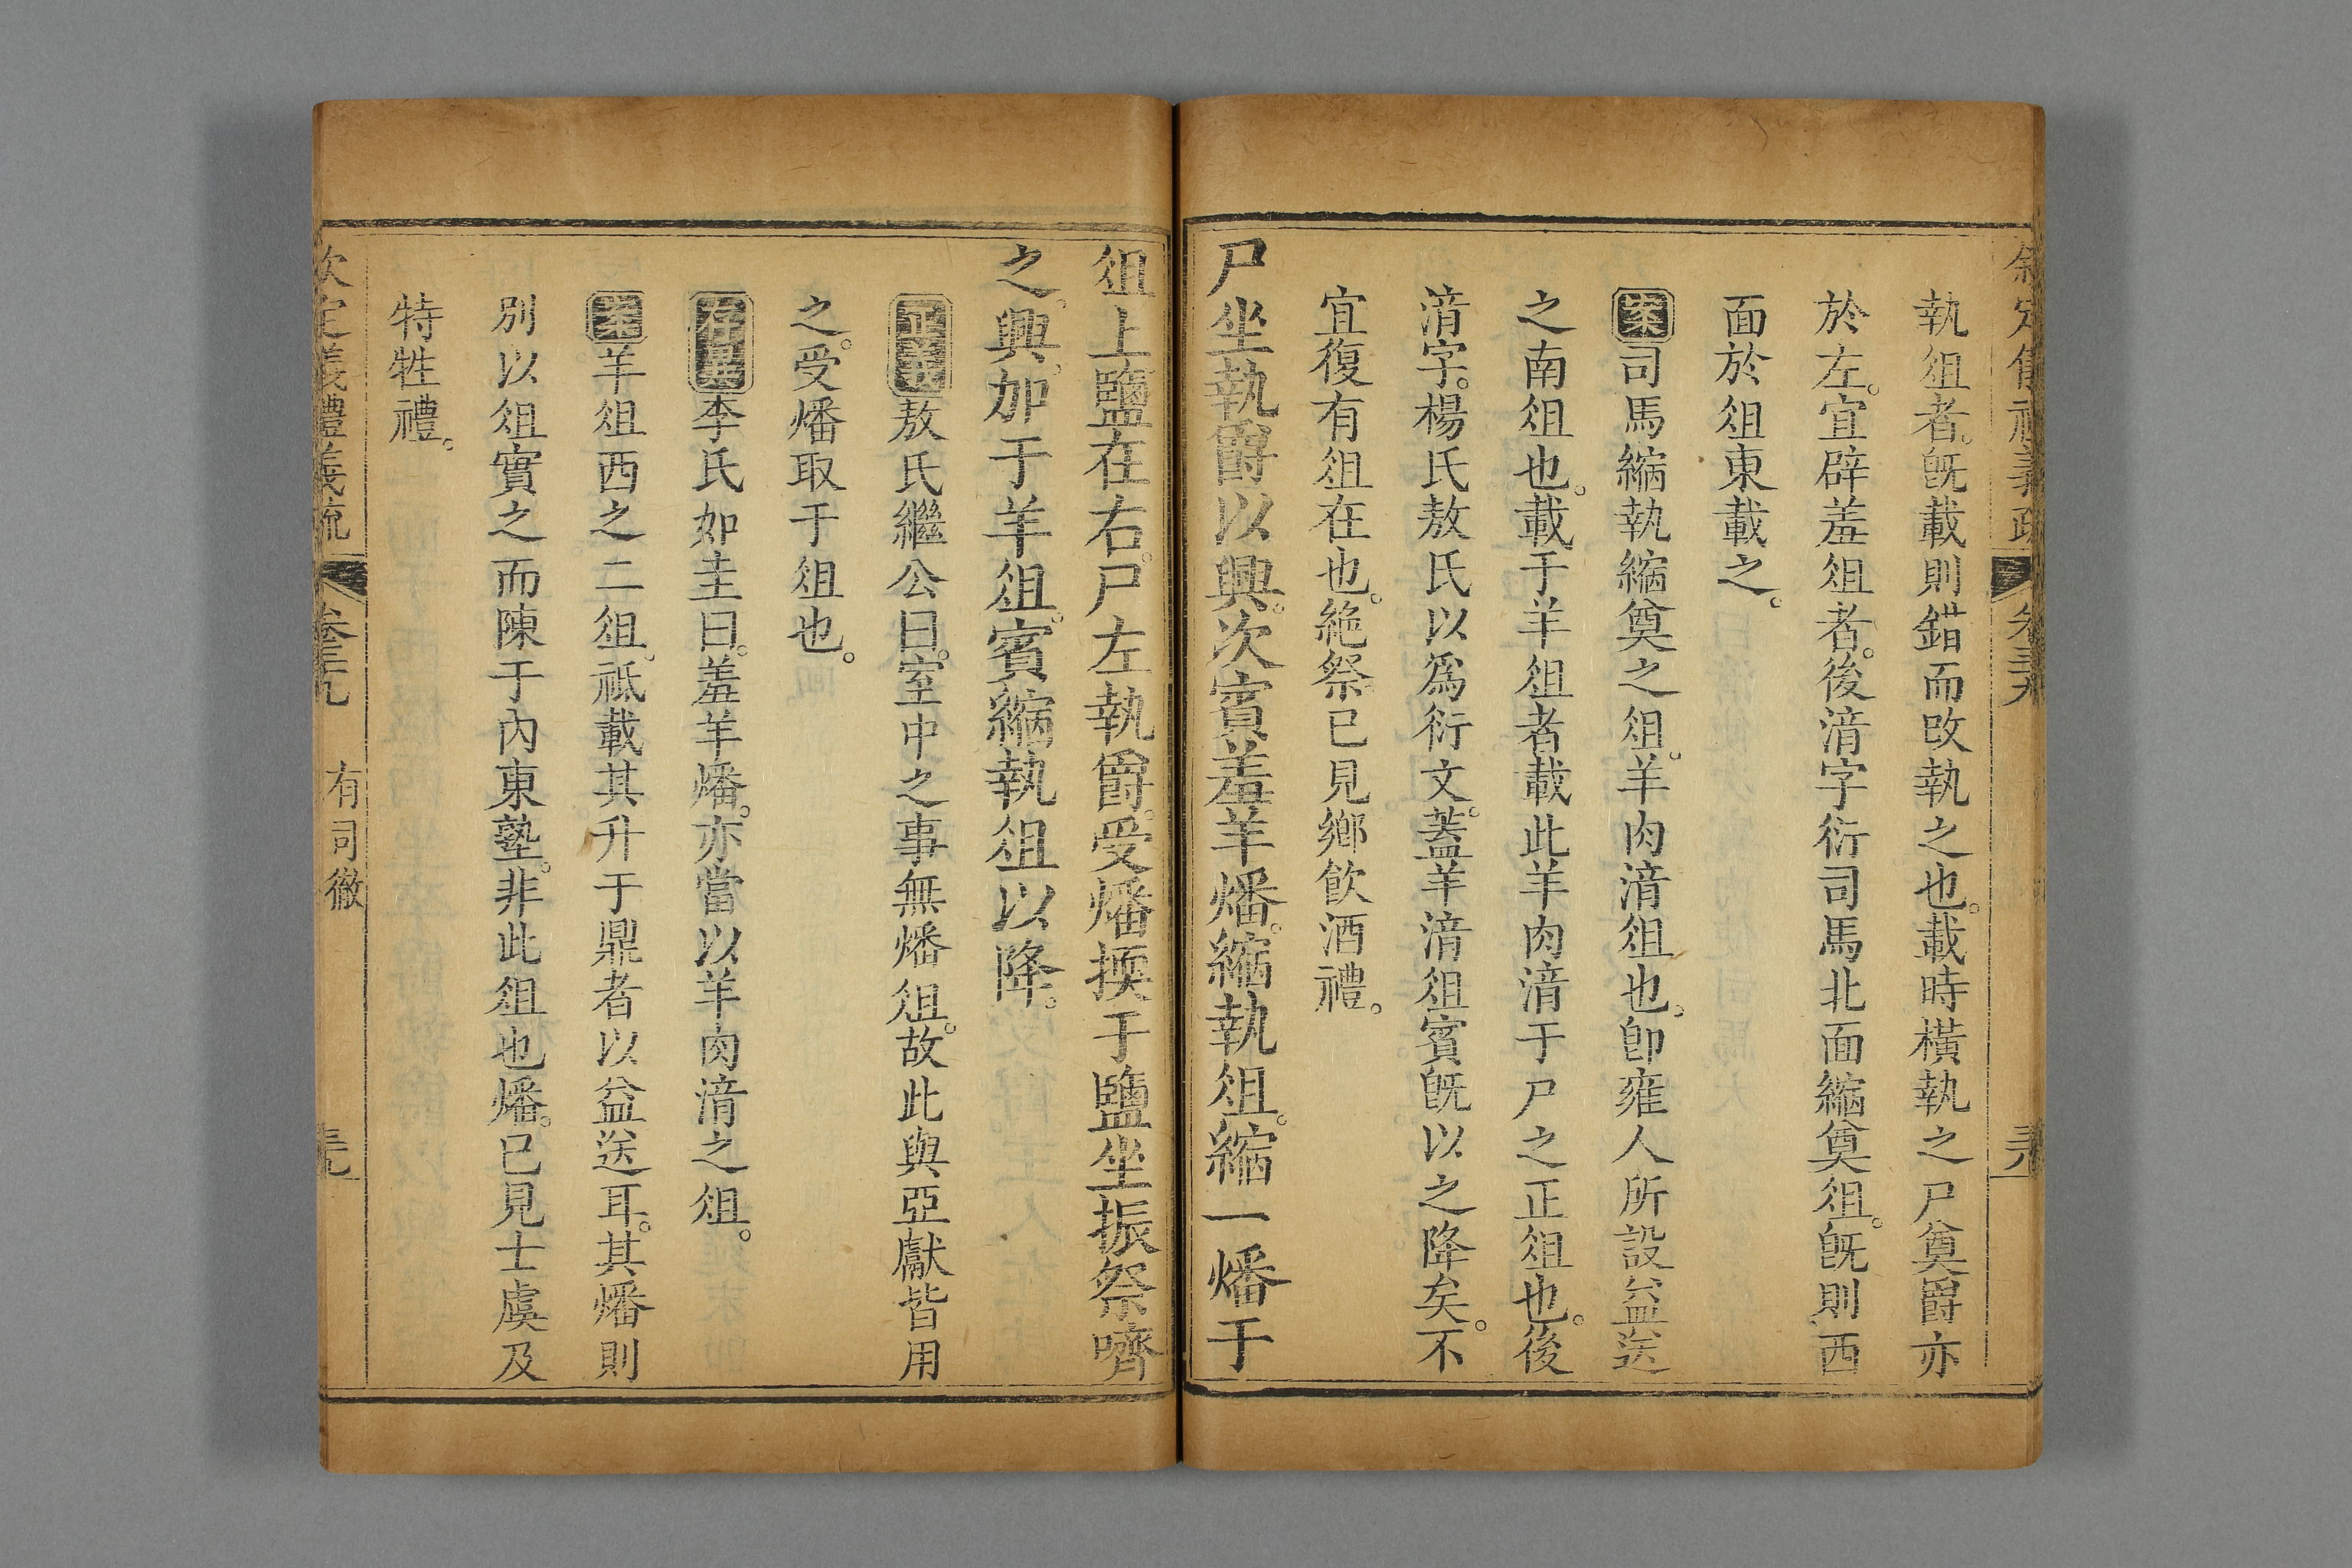 執俎者。旣載則錯而改執之也。載時橫執之尸奠爵亦
於左。宜辟羞俎者。後湇字衍司馬北面縮奠俎。旣則西
面於俎東載之。
案司馬縮執縮奠之俎。羊肉湇俎也。卽雍人所設益送
之南俎也。載于羊俎者載此羊肉湇于尸之正俎也。後
湇字。楊氏敖氏以爲衍文。蓋羊湇俎賓旣以之降矣。不
宜復有俎在也。絶祭已見鄉飮酒禮。
尸坐執爵以興。次賓羞羊燔。縮執俎。縮一燔于
俎上鹽在右。尸左執爵。受燔㨎于鹽坐振祭嚌
之。興。加于羊俎。賓縮執俎以降。
正義敖氏繼公曰。室中之事無燔俎。故此與亞獻皆用
之。受燔取于俎也。
存異李氏如圭曰。羞羊燔。亦當以羊肉湇之俎。
案羊俎西之二俎。祗載其升于鼎者以益送耳。其燔則
別以俎實之而陳于內東塾。非此俎也燔。已見士虞及
特牲禮。
欽定義禮義疏 卷三十九 有司徹